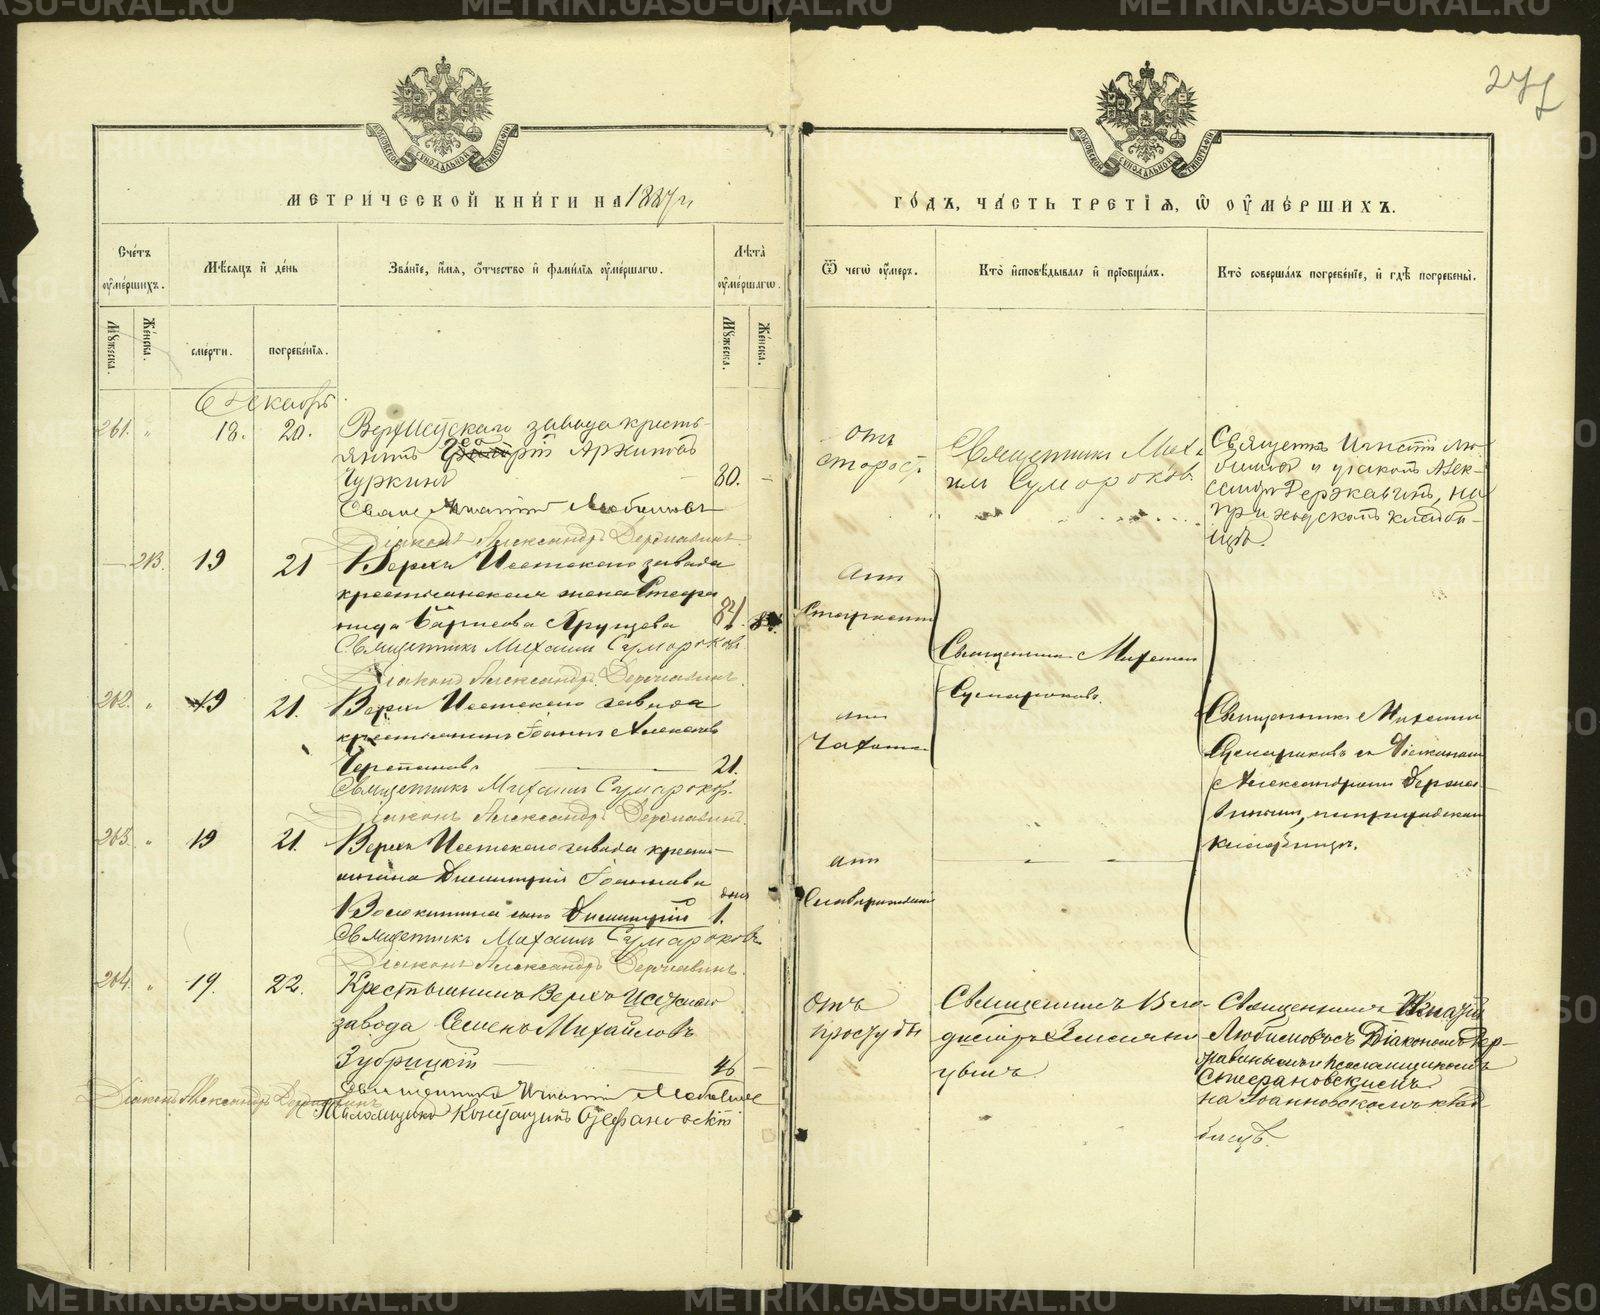 277
МЕТРИЧЕСКОЙ КНИГИ НА 1887 г.
ГОДЪ, ЧАСТЬ ТРЕТІЯ, Ѡ ОУМЕРШИХЪ.
Счетъ оумершихъ.
Мѣсяцъ и день
Званіе, имя, отчество и фамилія оумершагѡ.
Лѣта оумершагѡ.
Ѿ чегѡ оумеръ.
Кто исповѣдывалъ и пріобщалъ.
Кто совершалъ погребеніе, и гдѣ погребены.
Мужеска.
Женска.
смерти.
погребенія.
Мужеска.
Женска.
Декабрь
261. " 18. 20.
Верхисетскаго завода кресть-
янинъ Архиповъ
Чуркинъ 80. -
Свящ Игнатій Любимовъ
Діаконъ Александръ Державинъ.
отъ
старост.
Священникъ Миха-
илъ Сумароковъ.
Священ Игнатій Лю-
бимовъ и діаконъ Алек-
сандръ Державинъ, на
приходскомъ кладби-
щѣ.
- 213. 19 21
Верхъ Исетскаго завода
крестьянская жена Стефа
нида Борисова Хрущева
Священникъ Михаилъ Сумароковъ
Діаконъ Александръ Державинъ.
отъ
Старости
Священникъ Михаилъ
Сумароковъ.
262. " 19 21.
Верхъ Исетскаго завода
крестьянинъ Іоаннъ Алексѣевъ
Черепановъ 21.
Священникъ Михаилъ Сумароковъ.
Діаконъ Александръ Державинъ.
отъ
Чахотки
Священникъ Михаилъ
Сумароковъ съ Діакономъ
Александромъ Держа-
винымъ, на приходскомъ
кладбищѣ.
263. " 19 21.
Верхъ Исетскаго завода кресть-
янина Димитрія Іоаннова
сынъ Димитрій дня 1.
Священникъ Михаилъ Сумароковъ
Діаконъ Александръ Державинъ.
отъ
264. " 19. 22.
Крестьянинъ Верхъ Исетскаго
завода Семенъ Михайловъ
Зубрицкій 46 -
Священникъ Игнатій Любимовъ
Діаконъ Александръ Державинъ
Псаломщикъ Стефановскій
Отъ
простуды
Священникъ Вла-
диміръ
цынъ.
Священникъ Игнатій
Любимовъ съ Діакономъ Дер-
жавинымъ и псаломщикомъ
Стефановскимъ
на Іоанновскомъ клад-
бищѣ.
METRIKI.GASO-URAL.RU